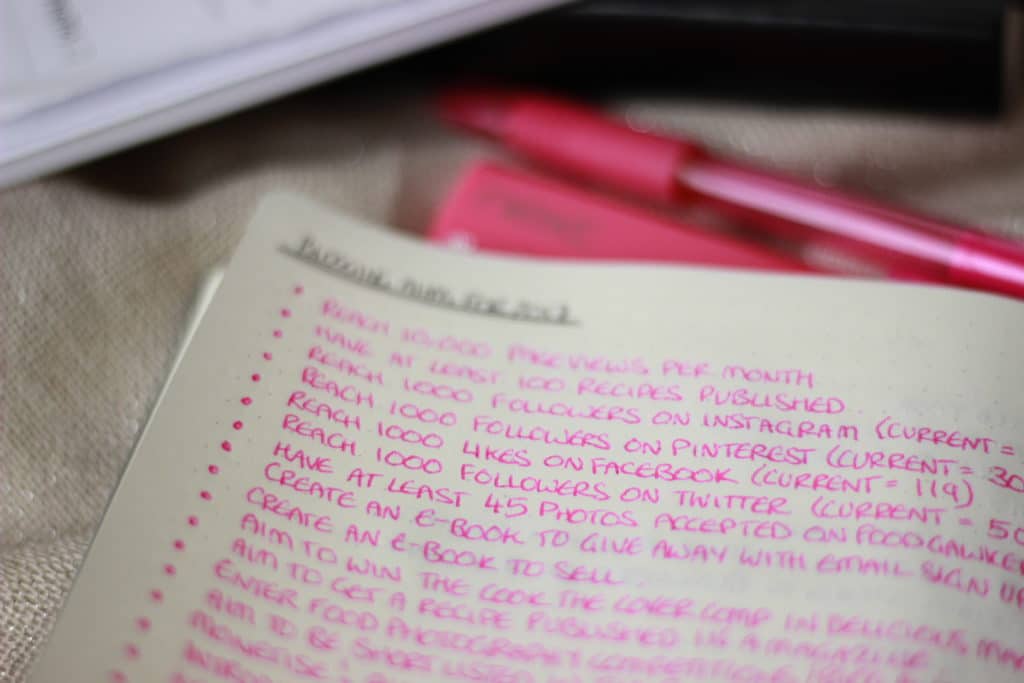 BLOGGING AIMS FOR
REACH 10,000 PAGEVIEWS PER MONTH
HAVE AT LEAST 100 RECIPES PUBLISHED
REACH 1000 FOLLOWERS ON INSTAGRAM (CURRENT =
REACH 1000 FOLLOWERS ON PINTEREST (CURRENT = 30
REACH 1000 LIKES ON FACEBOOK (CURRENT = 119)
REACH 1000 FOLLOWERS ON TWITTER (CURRENT = 50
HAVE AT LEAST 45 PHOTOS ACCEPTED ON FOODGAWKER
CREATE AN E-BOOK TO GIVE AWAY WITH EMAIL SIGN UP
CREATE AN E-BOOK TO SELL
AIM TO WIN THE COOK THE COVER COMP IN DELICIOUS MA
AIM TO GET A RECIPE PUBLISHED IN A MAGAZINE
ENTER FOOD PHOTOGRAPHY COMPETITIONS
AIM TO BE SHORTLISTED
ADVERTISE